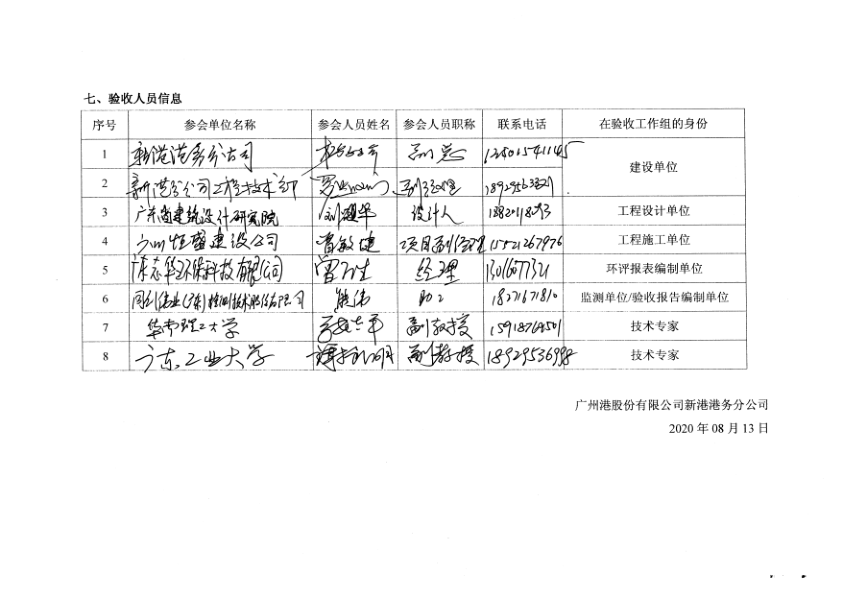 七、验收人员信息
序号 参会单位名称 参会人员姓名 参会人员职称 联系电话 在验收工作组的身份
1 新港港务分公司 副总 13501541145 建设单位
2 新港分公司工程技术部 副经理
3 广东省建筑设计研究院 设计人 工程设计单位
4 广州恒盛建设公司 曾敏捷 项目副经理 15521267976 工程施工单位
5 环保科技有限公司 经理 环评报表编制单位
6 检测技术股份有限公司 熊伟 助工 18271671810 监测单位/验收报告编制单位
7 华南理工大学 副教授 技术专家
8 广东工业大学 副教授 18929536998 技术专家
广州港股份有限公司新港港务分公司
2020 年 08 月 13 日